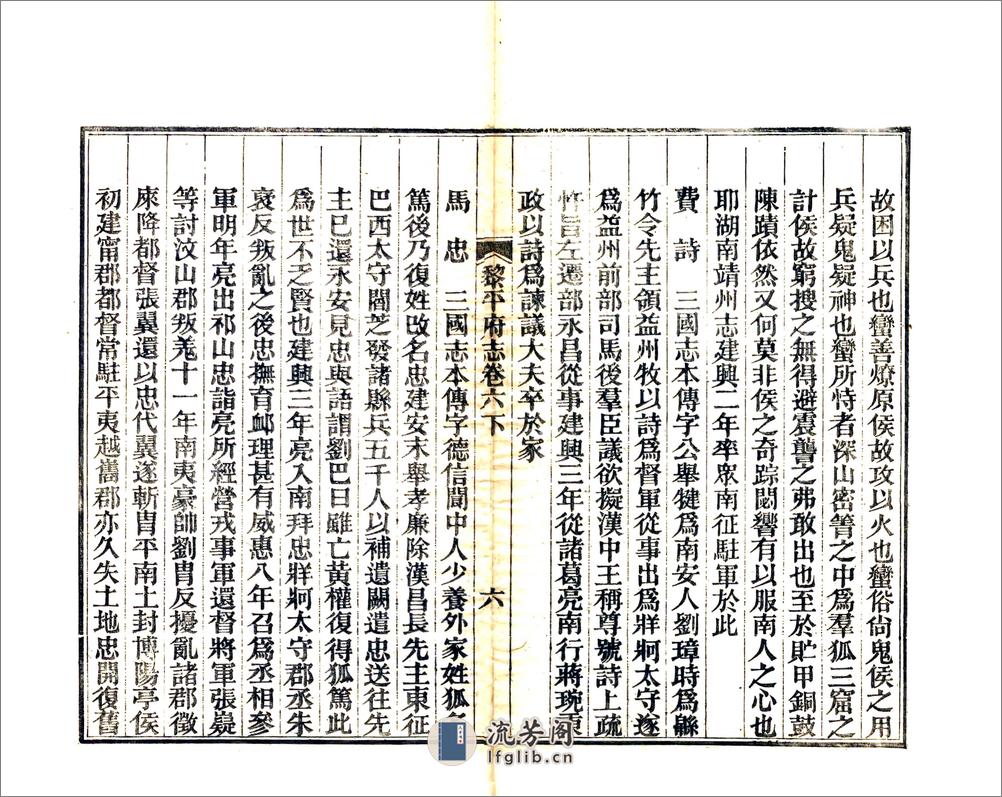 故困以兵也蠻善燎原侯故攻以火也蠻俗尙鬼侯之用
兵疑鬼疑神也蠻所恃者深山密箐之中爲羣狐三窟之
計侯故窮搜之無得避震讋之弗敢出也至於貯甲銅鼓
陳蹟依然又何莫非侯之奇踪閟響有以服南人之心也
耶湖南靖州志建興二年率眾南征駐軍於此
費詩 三國志本傳字公舉犍爲南安人劉璋時爲緜
竹令先主領益州牧以詩爲督軍從事出爲牂牁太守遂
爲益州前部司馬後羣臣議欲擬漢中王稱尊號詩上疏
忤旨左遷部永昌從事建興三年從諸葛亮南行蔣琬秉
政以詩爲諫議大夫卒於家
黎平府志卷六下
六
馬忠 三國志本傳字德信閬中人少養外家姓狐名
篤後乃復姓改名忠建安末舉孝廉除漢昌長先主東征
巴西太守閻芝發諸縣兵五千人以補遺闕遣忠送往先
主巳還永安見忠與語謂劉巴曰雖亡黃權復得狐篤此
爲世不乏賢也建興三年亮入南拜忠牂牁太守郡丞朱
褒反叛亂之後忠撫育卹理甚有威惠八年召爲丞相參
軍明年亮出祁山忠詣亮所經營戎事軍還督將軍張嶷
等討汶山郡叛羗十一年南夷豪帥劉胄反擾亂諸郡徵
庲降都督張翼還以忠代翼遂斬胄平南土封博陽亭侯
初建甯郡都督常駐平夷越嶲郡亦久失土地忠開復舊
流芳阁
lfglib.cn